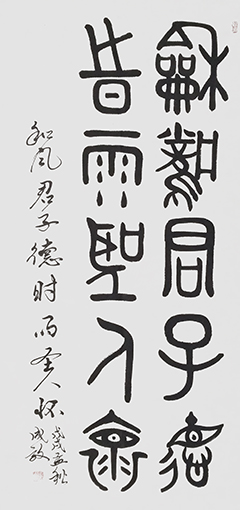 龢風君子德
旹雨聖人褱
和风君子德时雨圣人怀
戊戌孟秋
成